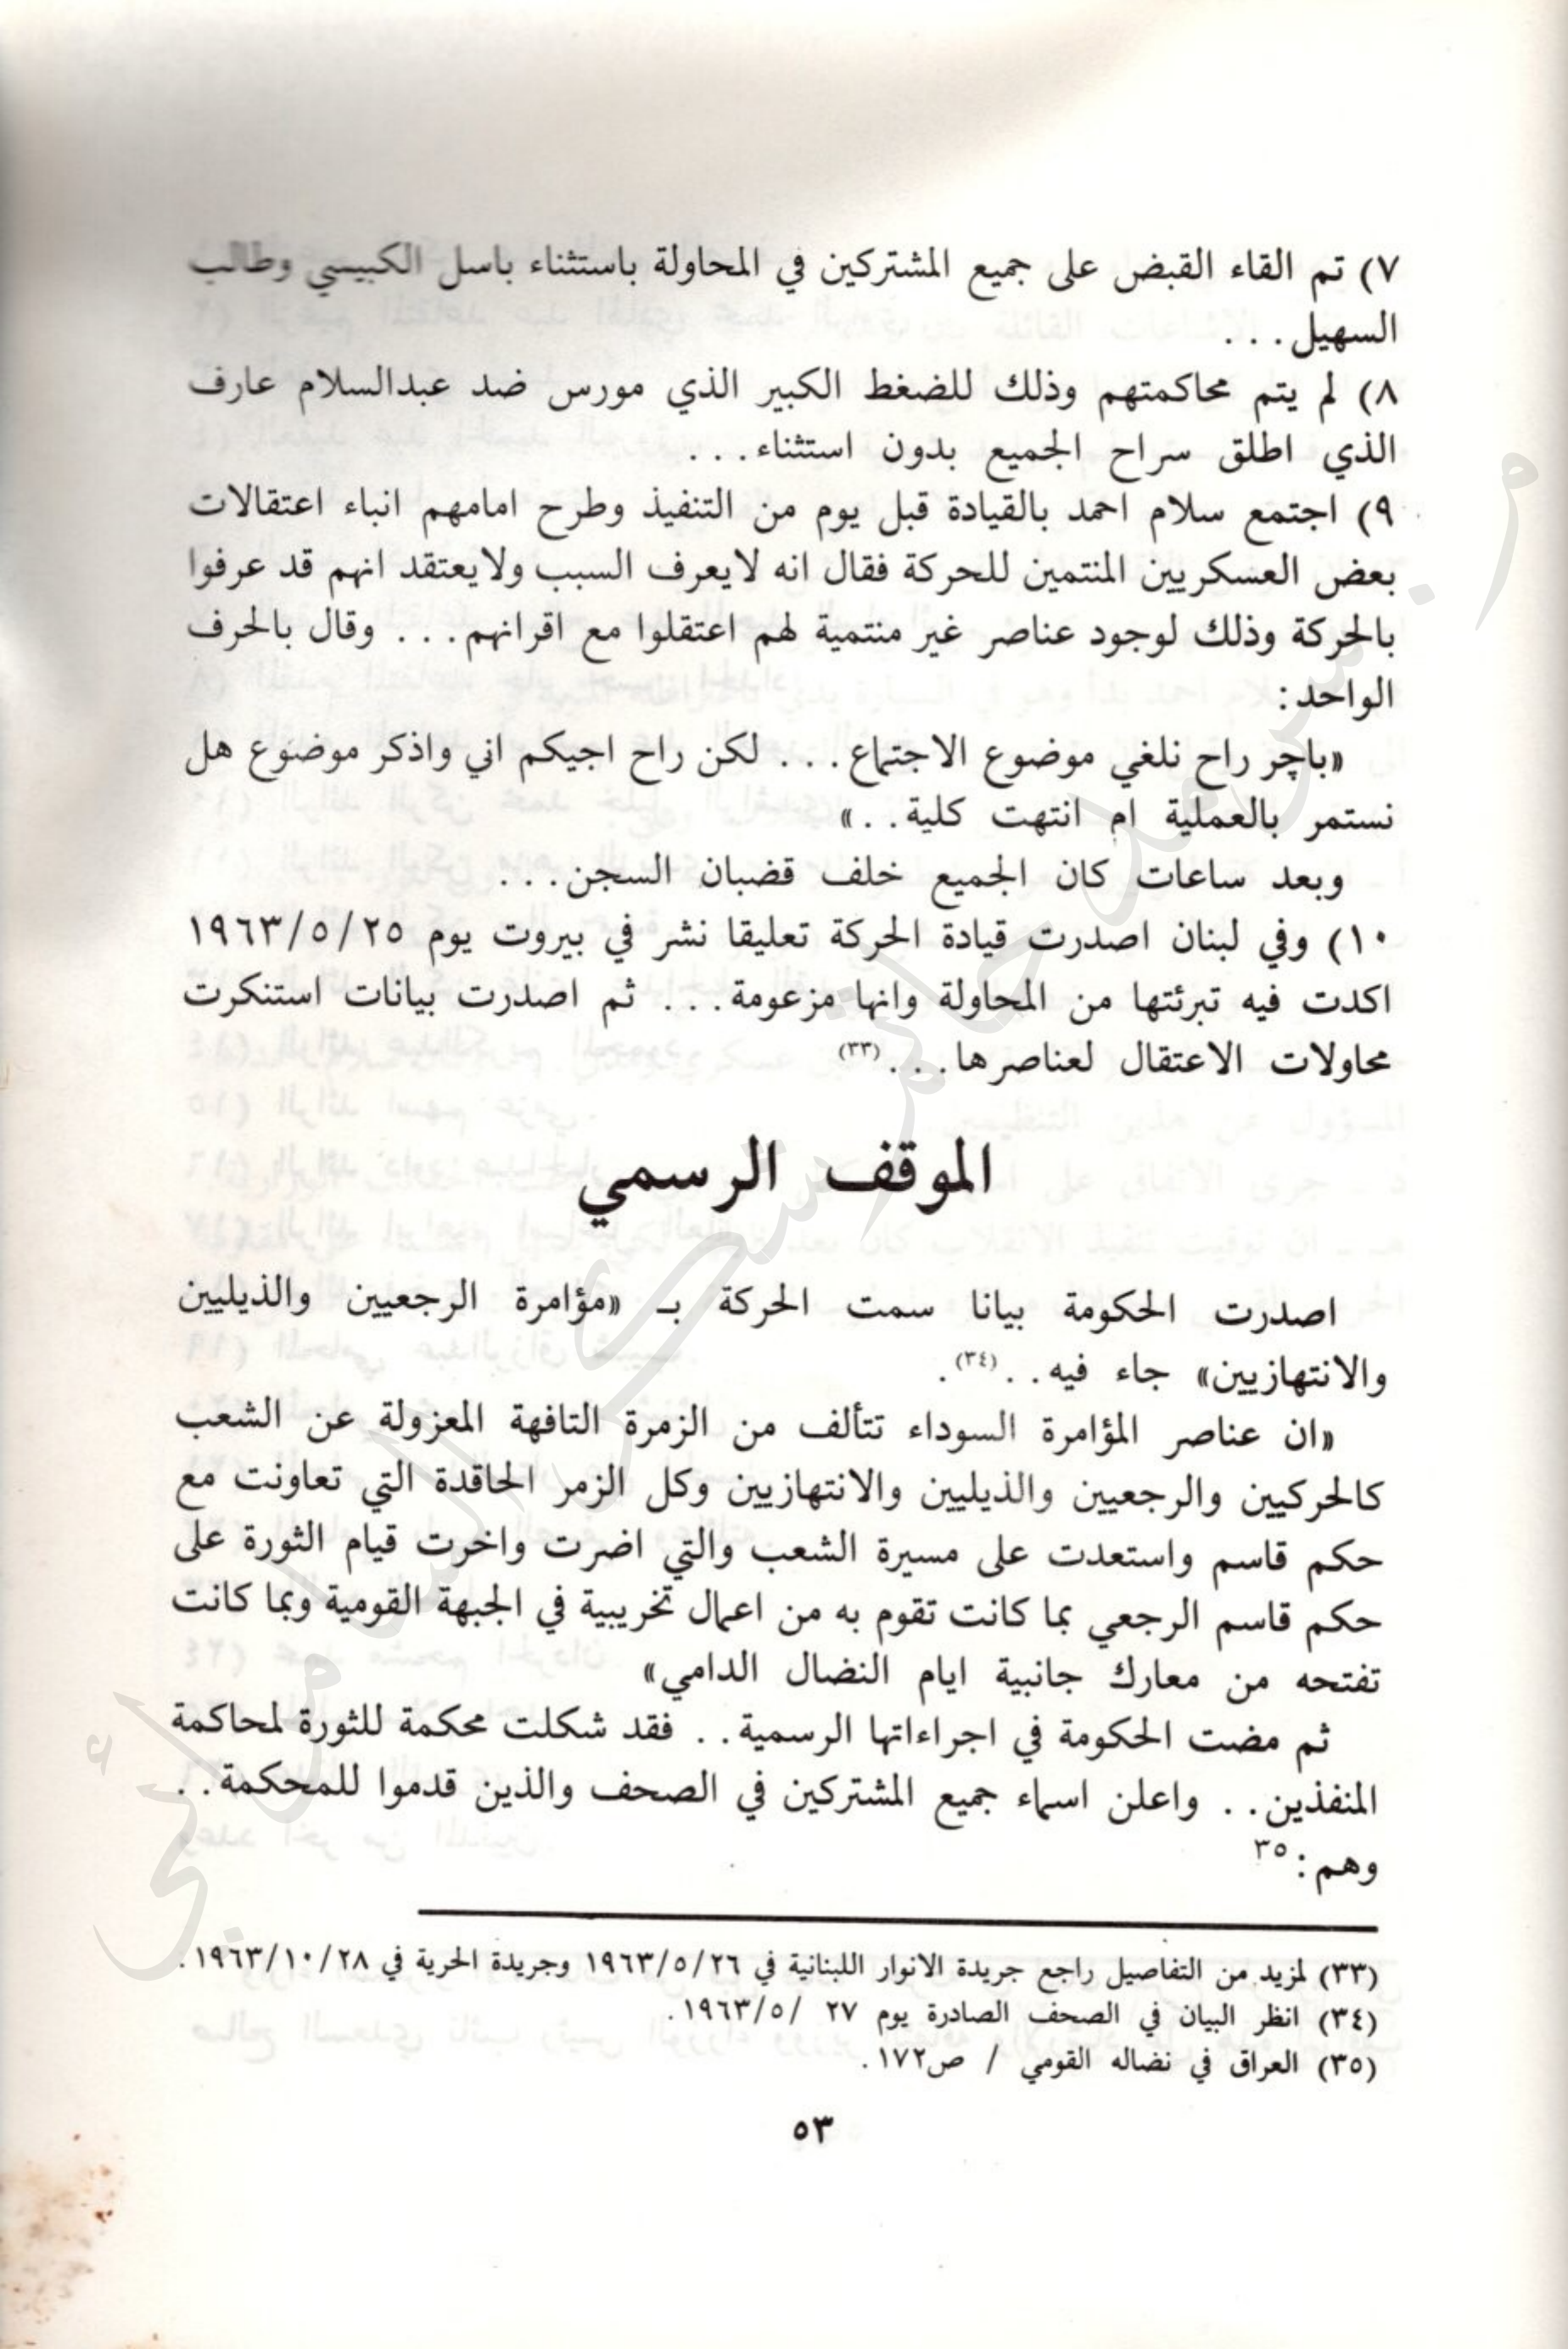 ٧) تم القاء القبض على جميع المشتركين في المحاولة باستثناء باسل الكبيسي وطالب
السهيل . . .
٨) لم يتم محاكمتهم وذلك للضغط الكبير الذي مورس ضد عبدالسلام عارف
الذي اطلق سراح الجميع بدون استثناء . . .
٩) اجتمع سلام احمد بالقيادة قبل يوم من التنفيذ وطرح امامهم انباء اعتقالات
بعض العسكريين المنتمين للحركة فقال انه لايعرف السبب ولايعتقد انهم قد عرفوا
بالحركة وذلك لوجود عناصر غير منتمية لهم اعتقلوا مع اقرانهم . . . وقال بالحرف
الواحد :
«باچر راح نلغي موضوع الاجتماع . . . لكن راح اجيكم اني واذكر موضوع هل
نستمر بالعملية ام انتهت كلية . . »
وبعد ساعات كان الجميع خلف قضبان السجن . . .
١٠) وفي لبنان اصدرت قيادة الحركة تعليقا نشر في بيروت يوم ١٩٦٣/٥/٢٥
اكدت فيه تبرئتها من المحاولة وانها مزعومة . . . ثم اصدرت بيانات استنكرت
محاولات الاعتقال لعناصرها . . . (٣٣)
الموقف الرسمي
اصدرت الحكومة بيانا سمت الحركة بـ «مؤامرة الرجعيين والذيليين
والانتهازيين» جاء فيه . . (٣٤) .
«ان عناصر المؤامرة السوداء تتألف من الزمرة التافهة المعزولة عن الشعب
كالحركيين والرجعيين والذيليين والانتهازيين وكل الزمر الحاقدة التي تعاونت مع
حكم قاسم واستعدت على مسيرة الشعب والتي اضرت واخرت قيام الثورة على
حكم قاسم الرجعي بما كانت تقوم به من اعمال تخريبية في الجبهة القومية وبما كانت
تفتحه من معارك جانبية ايام النضال الدامي»
ثم مضت الحكومة في اجراءاتها الرسمية . . فقد شكلت محكمة للثورة لمحاكمة
المنفذين . . واعلن اسماء جميع المشتركين في الصحف والذين قدموا للمحكمة . .
وهم : ٣٥
(٣٣) لمزيد من التفاصيل راجع جريدة الانوار اللبنانية في ١٩٦٣/٥/٢٦ وجريدة الحرية في ١٩٦٣/١٠/٢٨ .
(٣٤) انظر البيان في الصحف الصادرة يوم ٢٧ /١٩٦٣/٥ .
(٣٥) العراق في نضاله القومي / ص١٧٢ .
٥٣